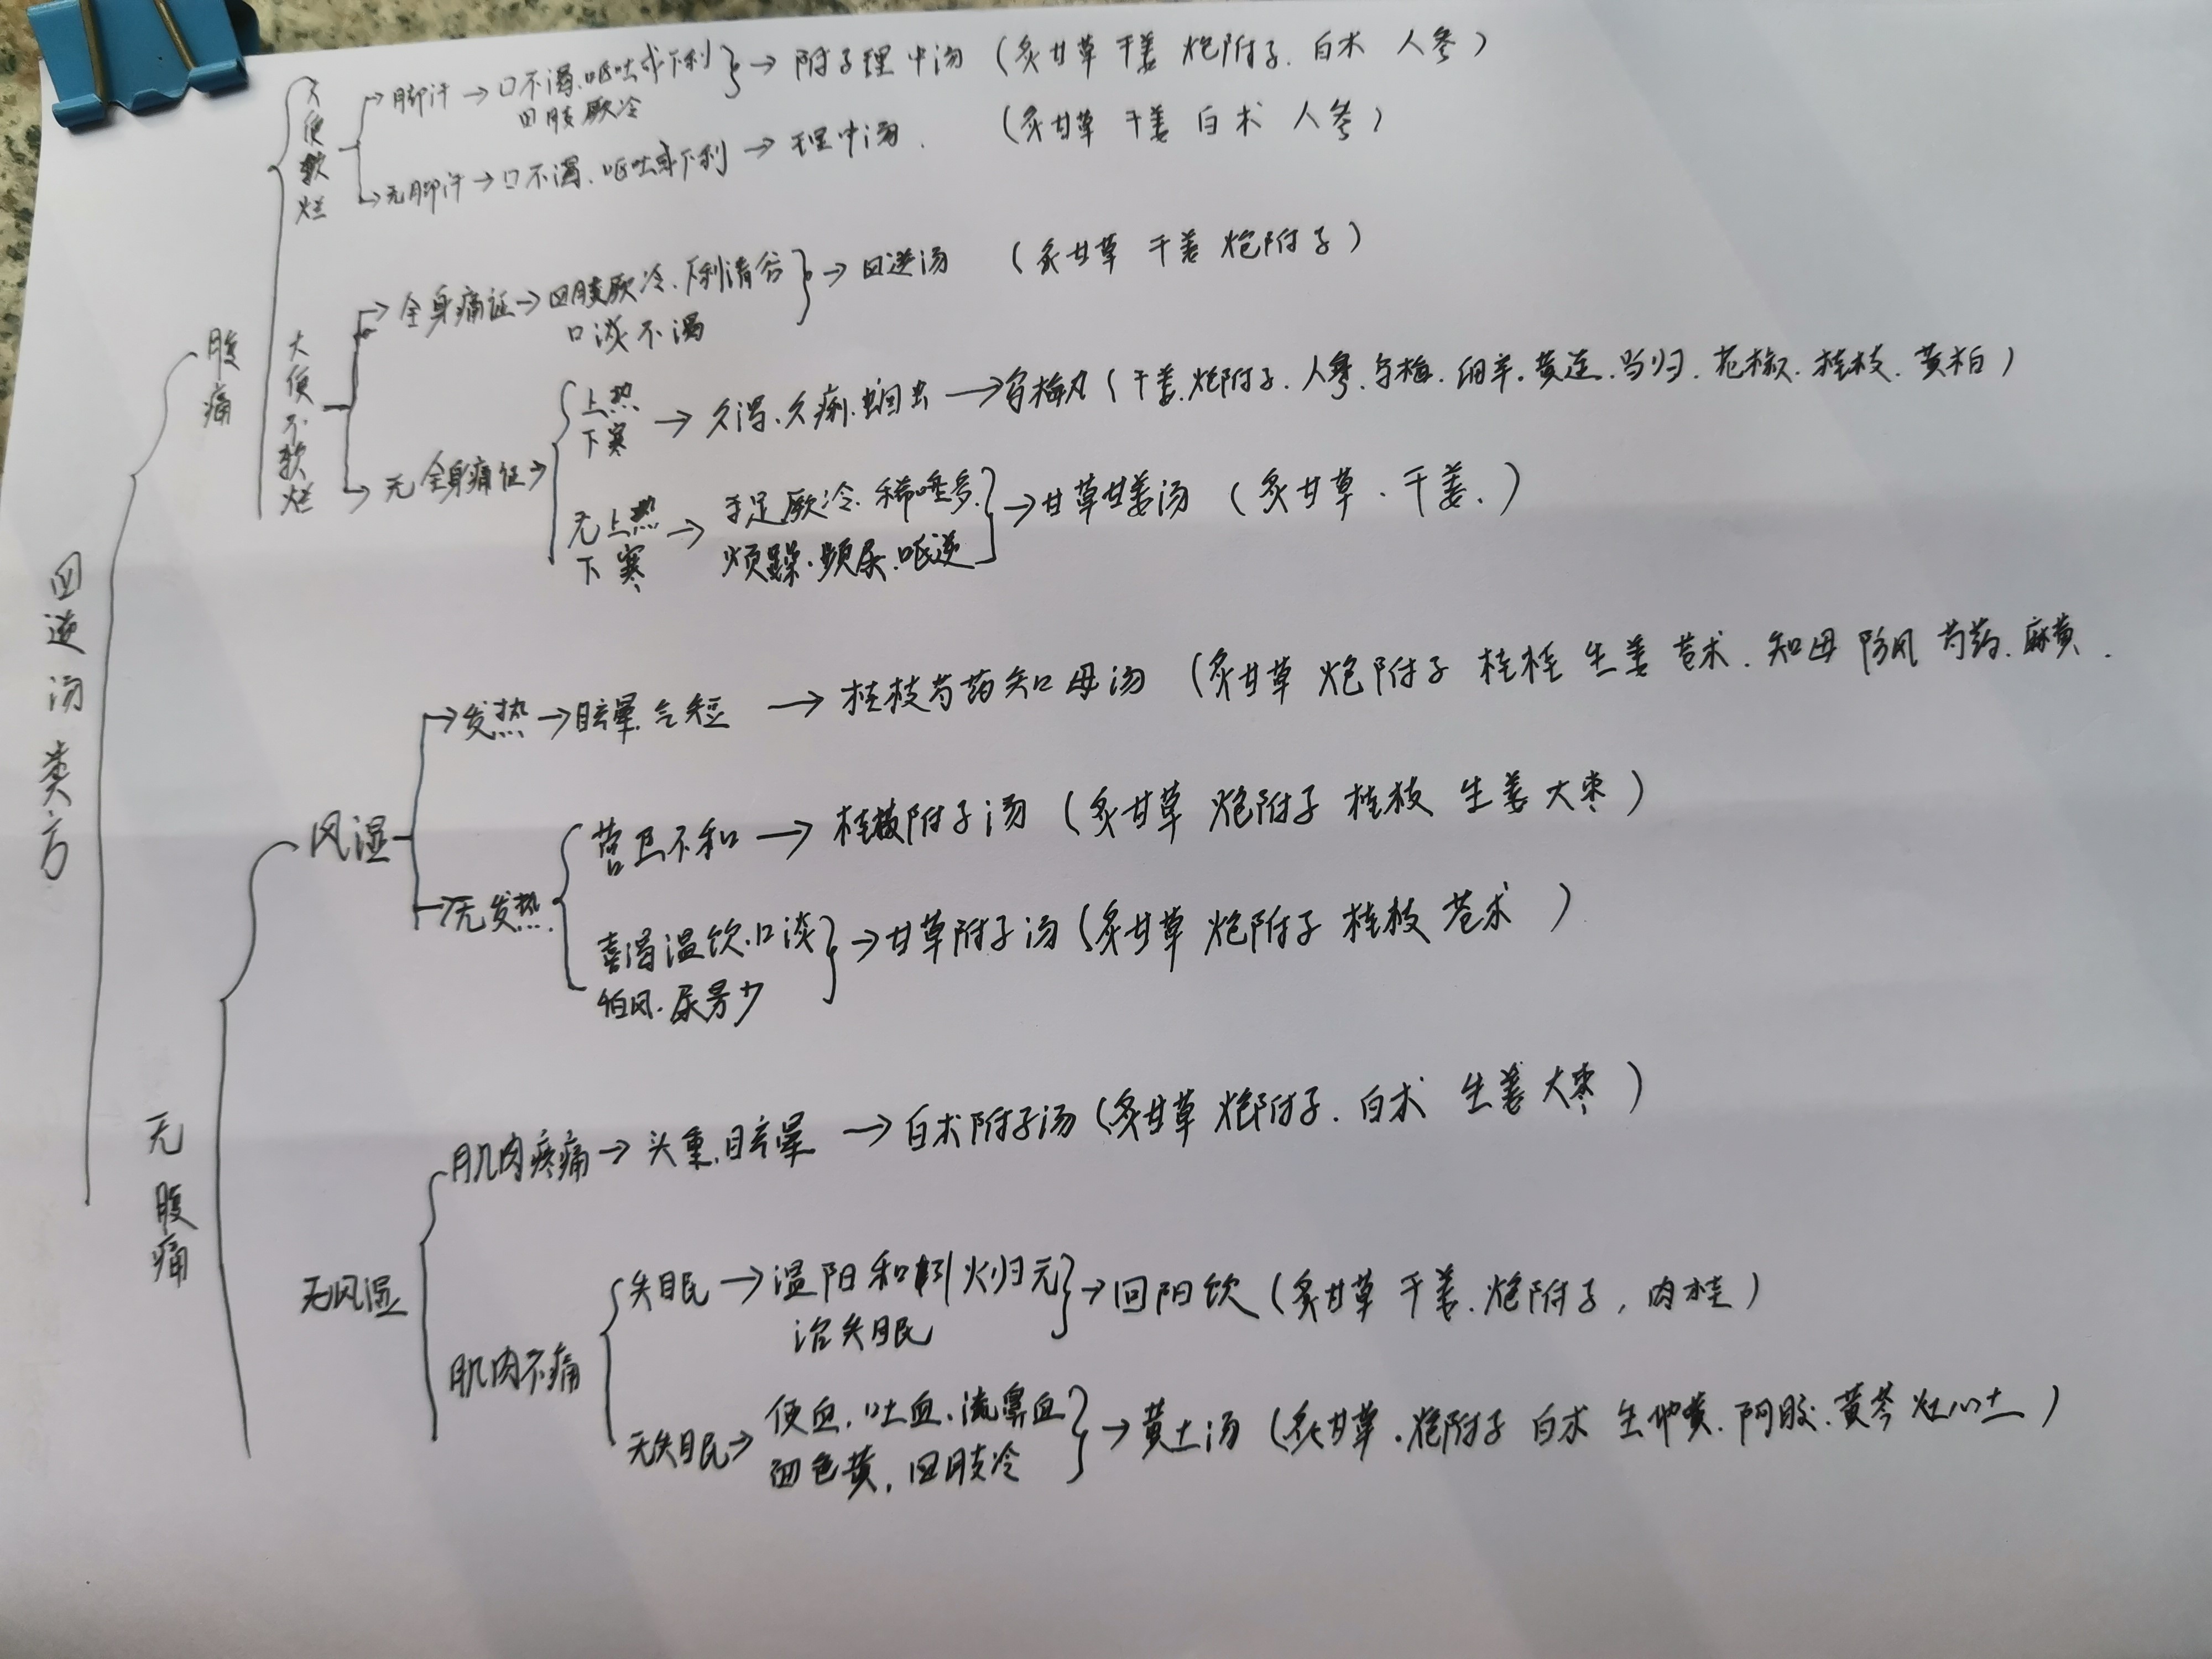 四逆汤类方
腹痛
大便软烂
脚汗→口不渴.呕吐或下利
四肢厥冷
→附子理中汤（炙甘草 干姜 炮附子.白术 人参）
无脚汗→口不渴.呕吐或下利→理中汤.（炙甘草 干姜 白术 人参）
大便不软烂
全身痛证→四肢厥冷.下利清谷
口淡不渴
→四逆汤（炙甘草 干姜 炮附子）
无全身痛证→
上热
下寒
→久泻、久痢.蛔虫→乌梅丸（干姜.炮附子.人参.乌梅.细辛.黄连.当归.花椒.桂枝.黄柏）
无上热
下寒
→手足厥冷.稀唾多.
烦躁.频尿.呕逆
→甘草甘姜汤（炙甘草.干姜.）
无腹痛
风湿
发热→眩晕.气短→桂枝芍药知母汤（炙甘草 炮附子 桂枝 生姜 苍术.知母 防风 芍药.麻黄.
无发热.
营卫不和→桂枝附子汤（炙甘草 炮附子 桂枝 生姜 大枣）
喜渴温饮.口淡
怕风.尿易少
→甘草附子汤（炙甘草 炮附子 桂枝 苍术）
无风湿
肌肉疼痛→头重.眩晕→白术附子汤（炙甘草 炮附子.白术 生姜 大枣）
肌肉不痛
失眠→温阳和引火归元
治失眠
→回阳饮（炙甘草 干姜.炮附子，肉桂）
无失眠→便血.吐血.流鼻血
面色黄，四肢冷
→黄土汤（炙甘草.炮附子 白术 生地黄.阿胶.黄芩 灶心土）